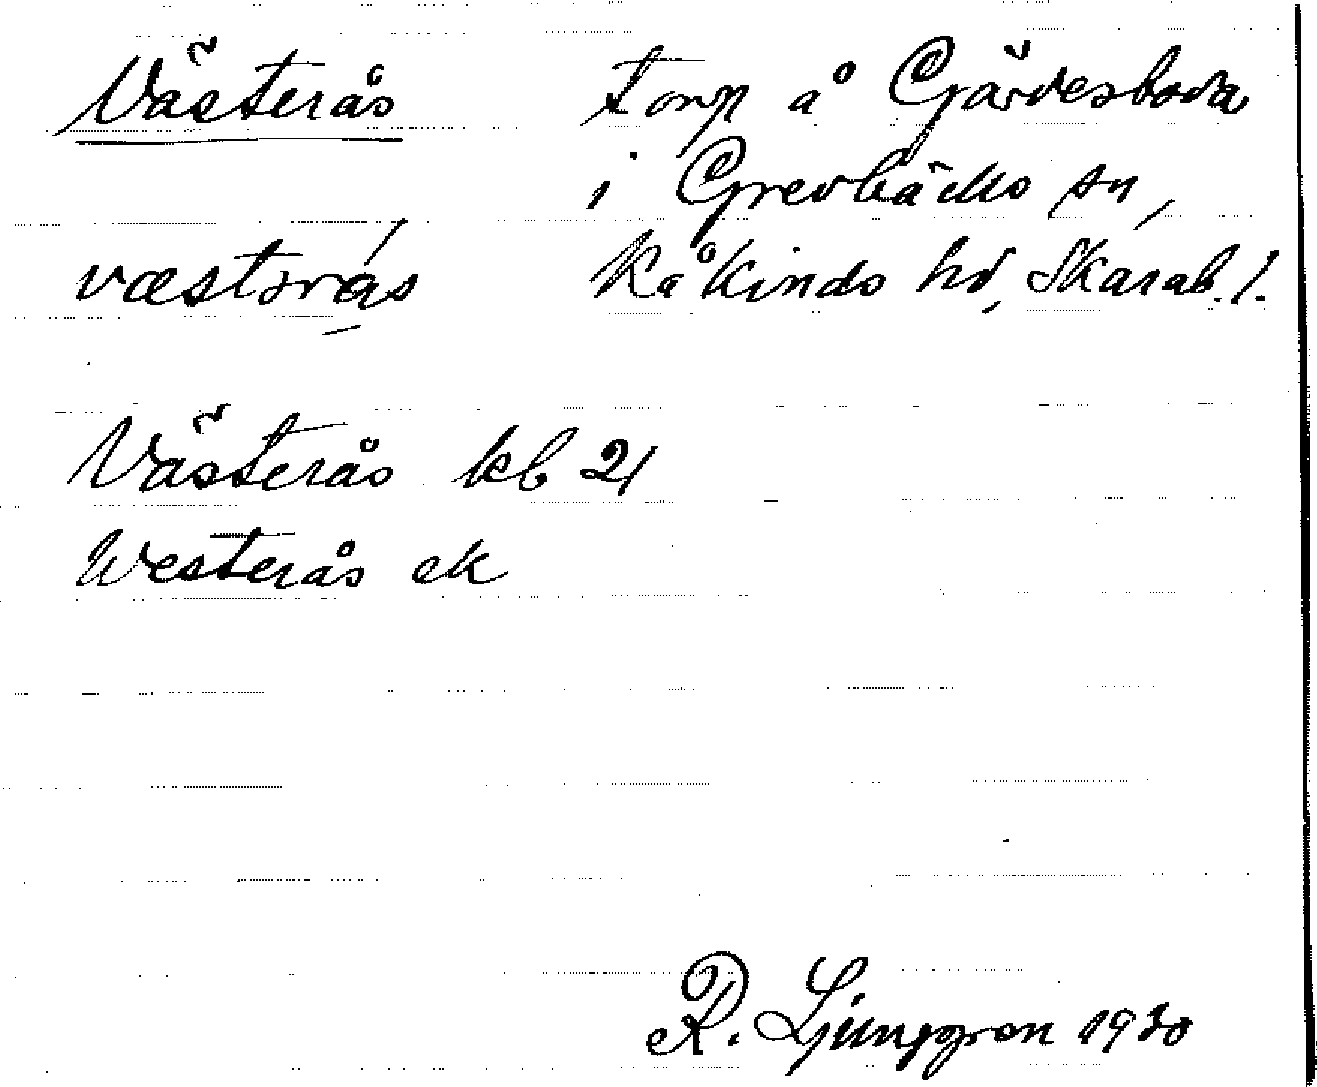 Västerås torp å Gärdesboda
i Grevbäcks sn,
væstərås Kåkinds hd, Skarab. l.
Västerås kb 21
Westerås ek
R. Ljunggren 1930